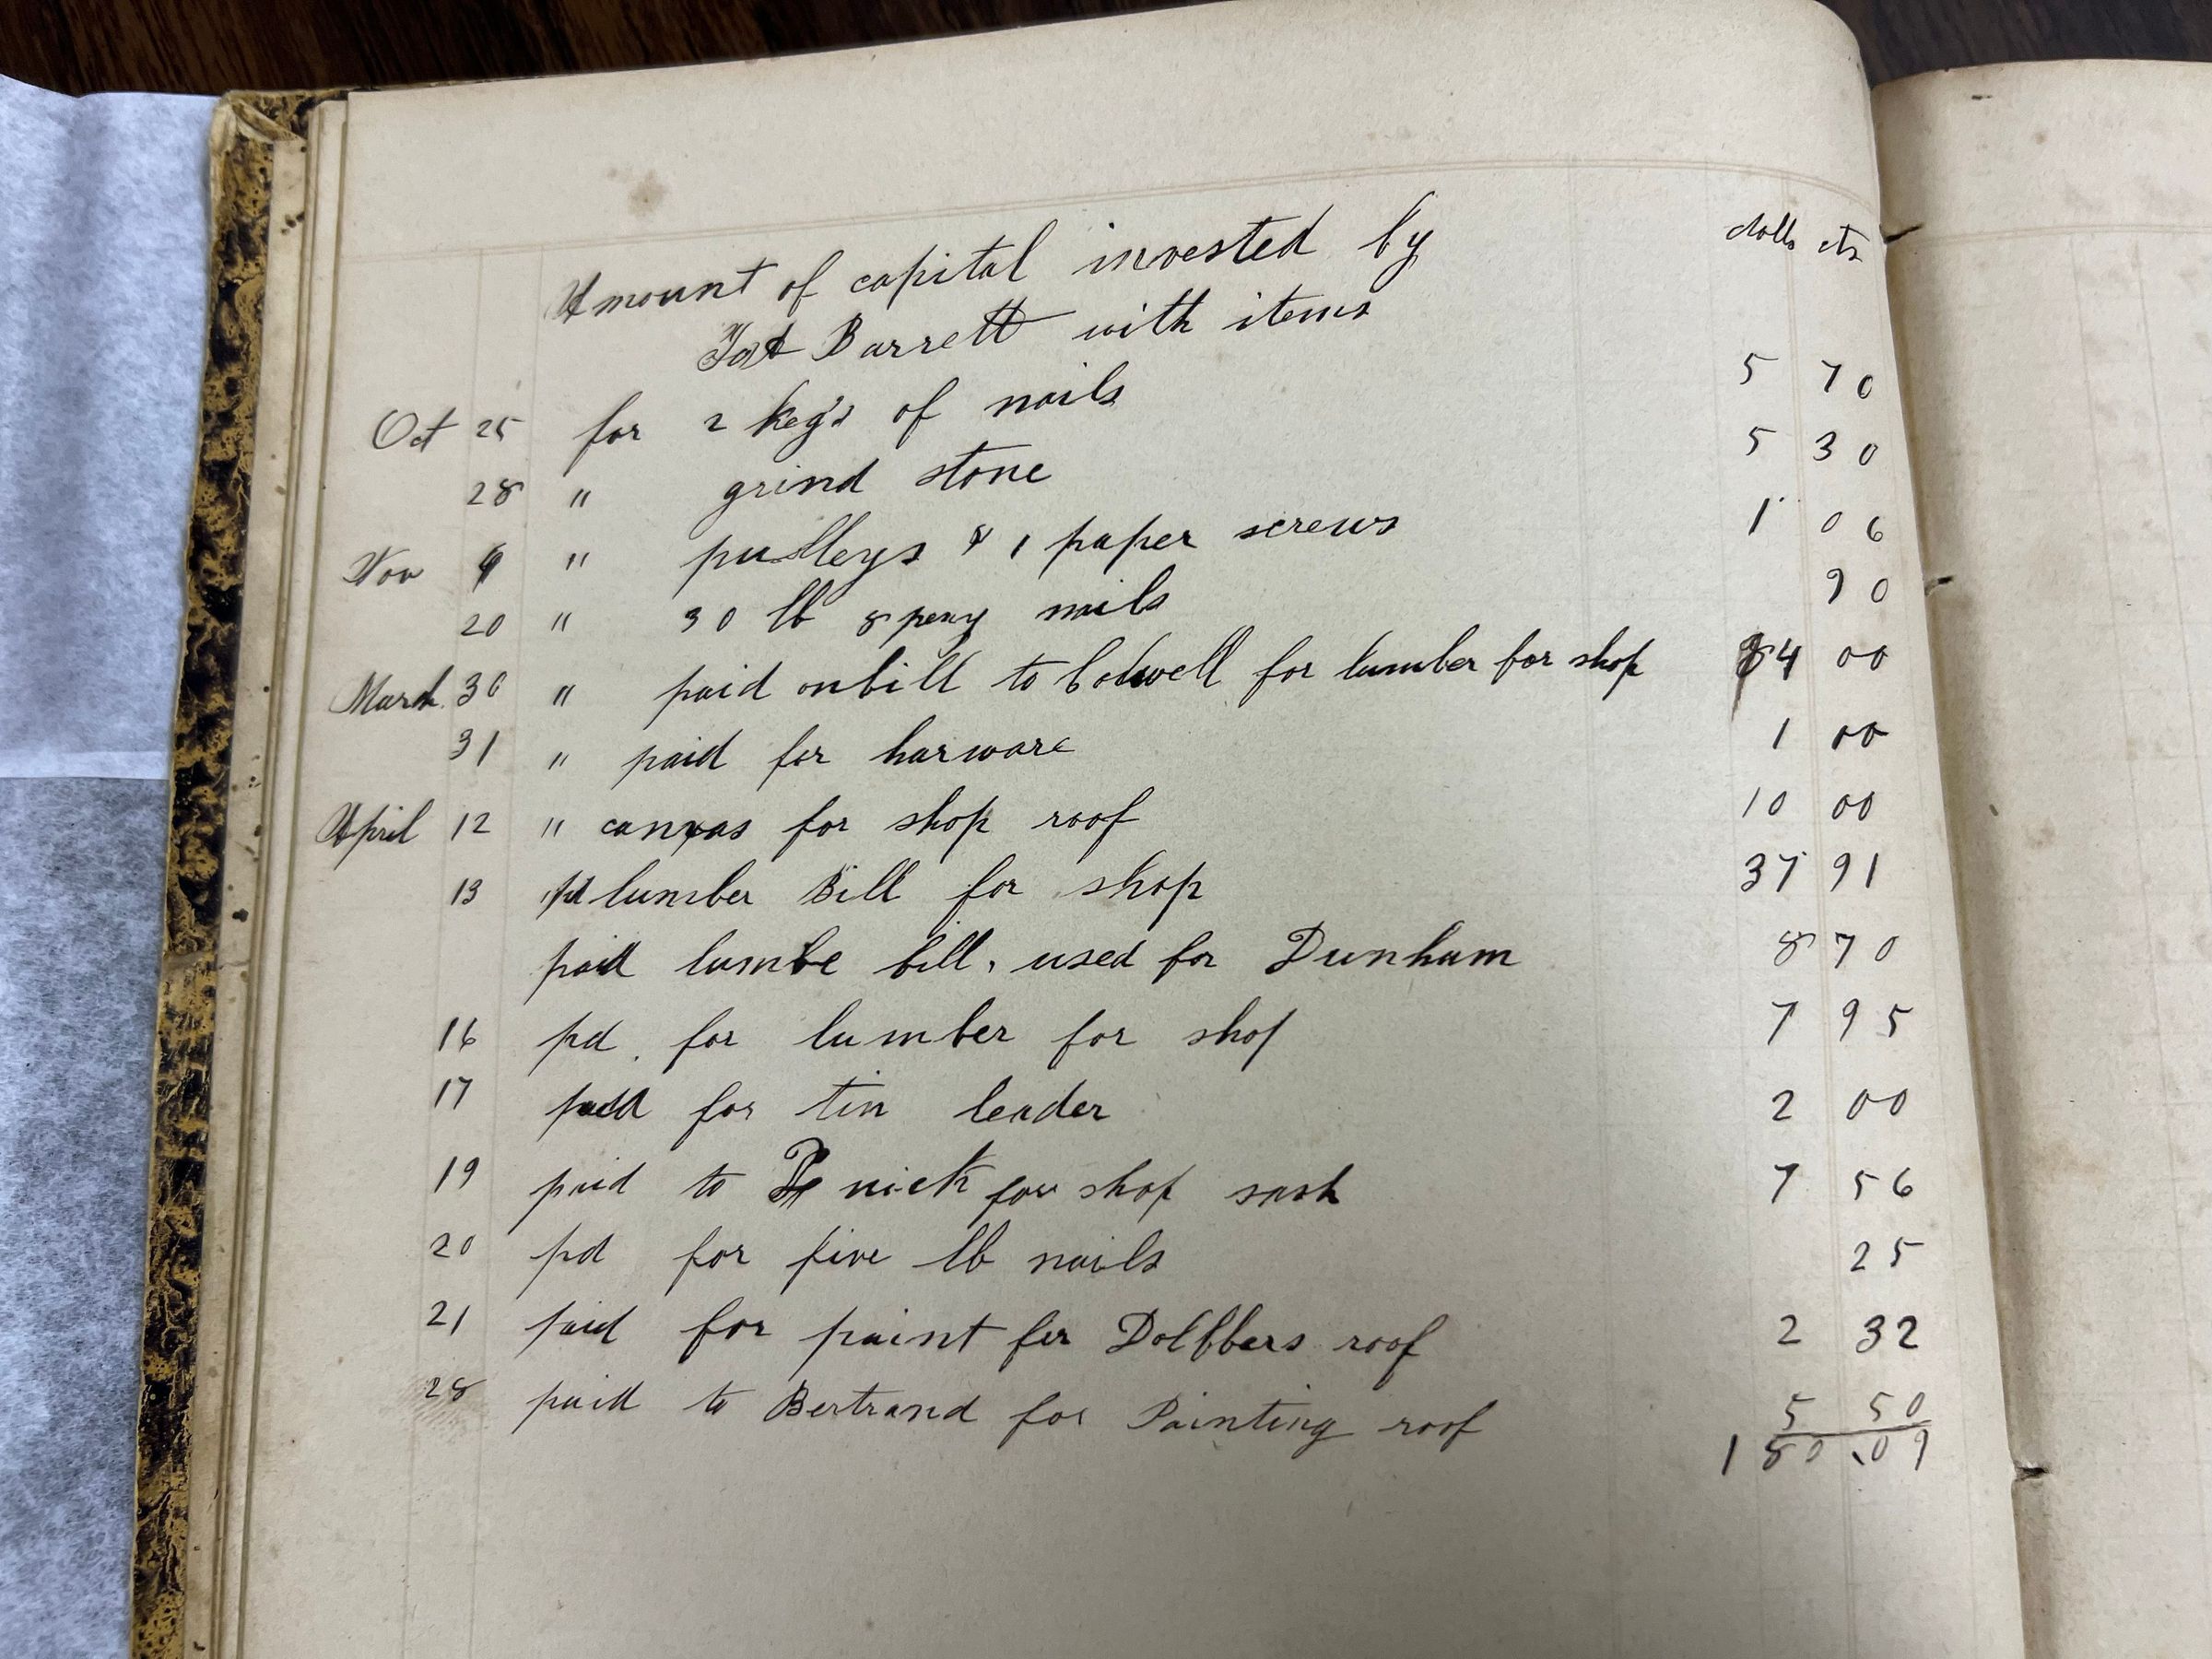 dolls cts
Amount of capital invested by
Barrett with items
Oct 25 for 2 keg's of nails 5 70
28 " grind stone 5 30
Nov 9 " pulleys & 1 paper screws 1 06
20 " 30 lb 8 peny nails 90
March 30 " paid on bill to Colwell for lumber for shop 84 00
31 " paid for harware 1 00
April 12 " canvas for shop roof 10 00
13 pd lumber Bill for shop 37 91
paid lumbe bill, used for Dunham 8 70
16 pd. for lumber for shop 7 95
17 paid for tin leader 2 00
19 paid to nick for shop sash 7 56
20 pd for five lb nails 25
21 paid for paint for roof 2 32
28 paid to Bertrand for Painting roof 5 50
180.09